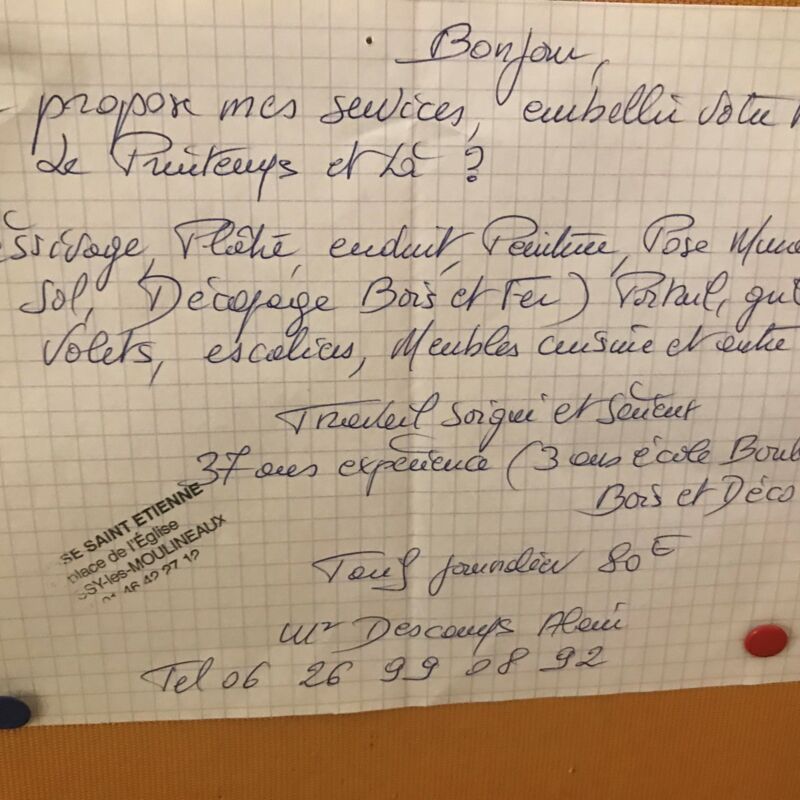 Bonjour,
propose mes services, embellir votre
Le Printemps et Là ?
essivage, Plâtre, enduit, Peinture, Pose Mura
sol, Décapage Bois et Fer) Portail,
Volets, escaliers, Meubles cuisine et autre
Travail soigné et
37 ans expérience (3 ans école Boul
Bois et Déco
SE SAINT ETIENNE
place de l'Église
SSY-les-MOULINEAUX
01 46 42 27 12
Tarif journalier 80 E
Mr Descamps Alain
Tel 06 26 99 08 92